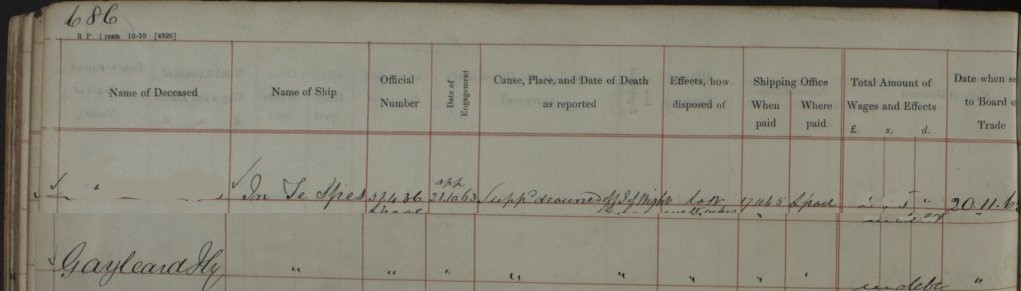 686
R P 1 ream 10-59 [4926]
Name of Deceased
Name of Ship
Official Number
Date of Engagement
Cause, Place, and Date of Death as reported
Effects, how disposed of
Shipping Office
When paid
Where paid
Total Amount of Wages and Effects
£ s. d.
Date when se
to Board o
Trade
In Te Spes app Supp drowned off I of Wight Lpool 20.11.6
Gayleard Hy " " " " " " " " in debt "